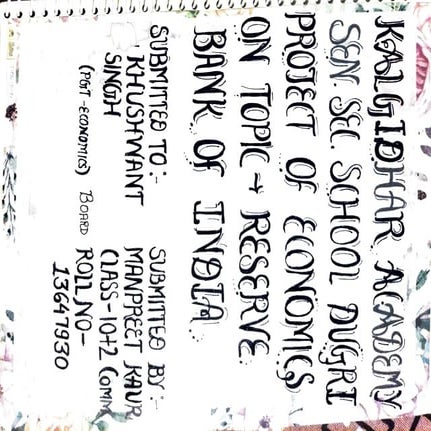 KALGIDHAR ACADEMY
SEN. SEC. SCHOOL DUGRI
PROJECT OF ECONOMICS
ON TOPIC → RESERVE
BANK OF INDIA.
SUBMITTED TO:-
KHUSHWANT
SINGH
(PGT-ECONOMICS)
SUBMITTED BY:-
MANPREET KAUR
CLASS-10+2 COMM
BOARD ROLL NO-
13647930